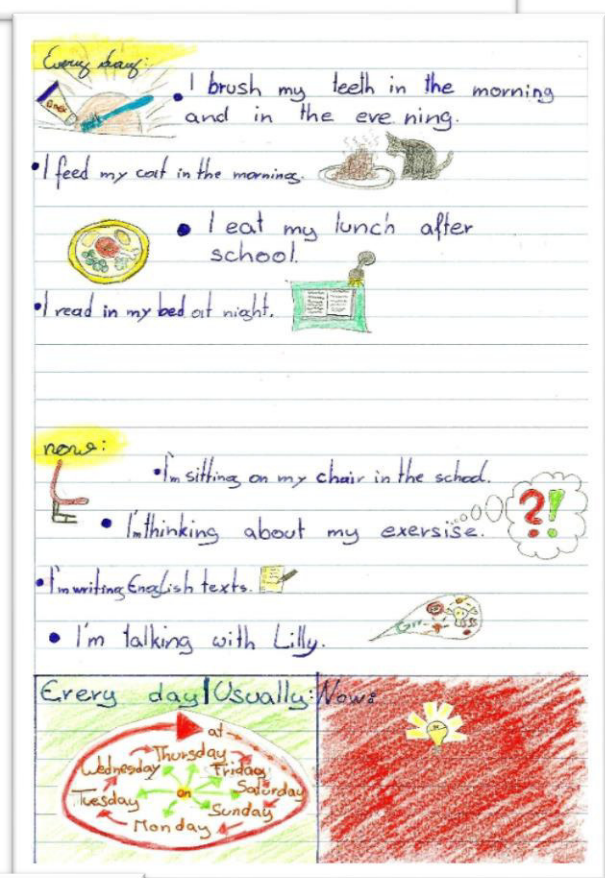 Every day:
• I brush my teeth in the morning
and in the evening.
• I feed my cat in the morning.
• I eat my lunch after
school.
• I read in my bed at night.
now:
• I'm sitting on my chair in the school.
• I'm thinking about my exersise.
?!
• I'm writing English texts.
• I'm talking with Lilly.
Every day/Usually: Now:
at
Thursday
Wednesday Friday
on Saturday
Tuesday Sunday
Monday